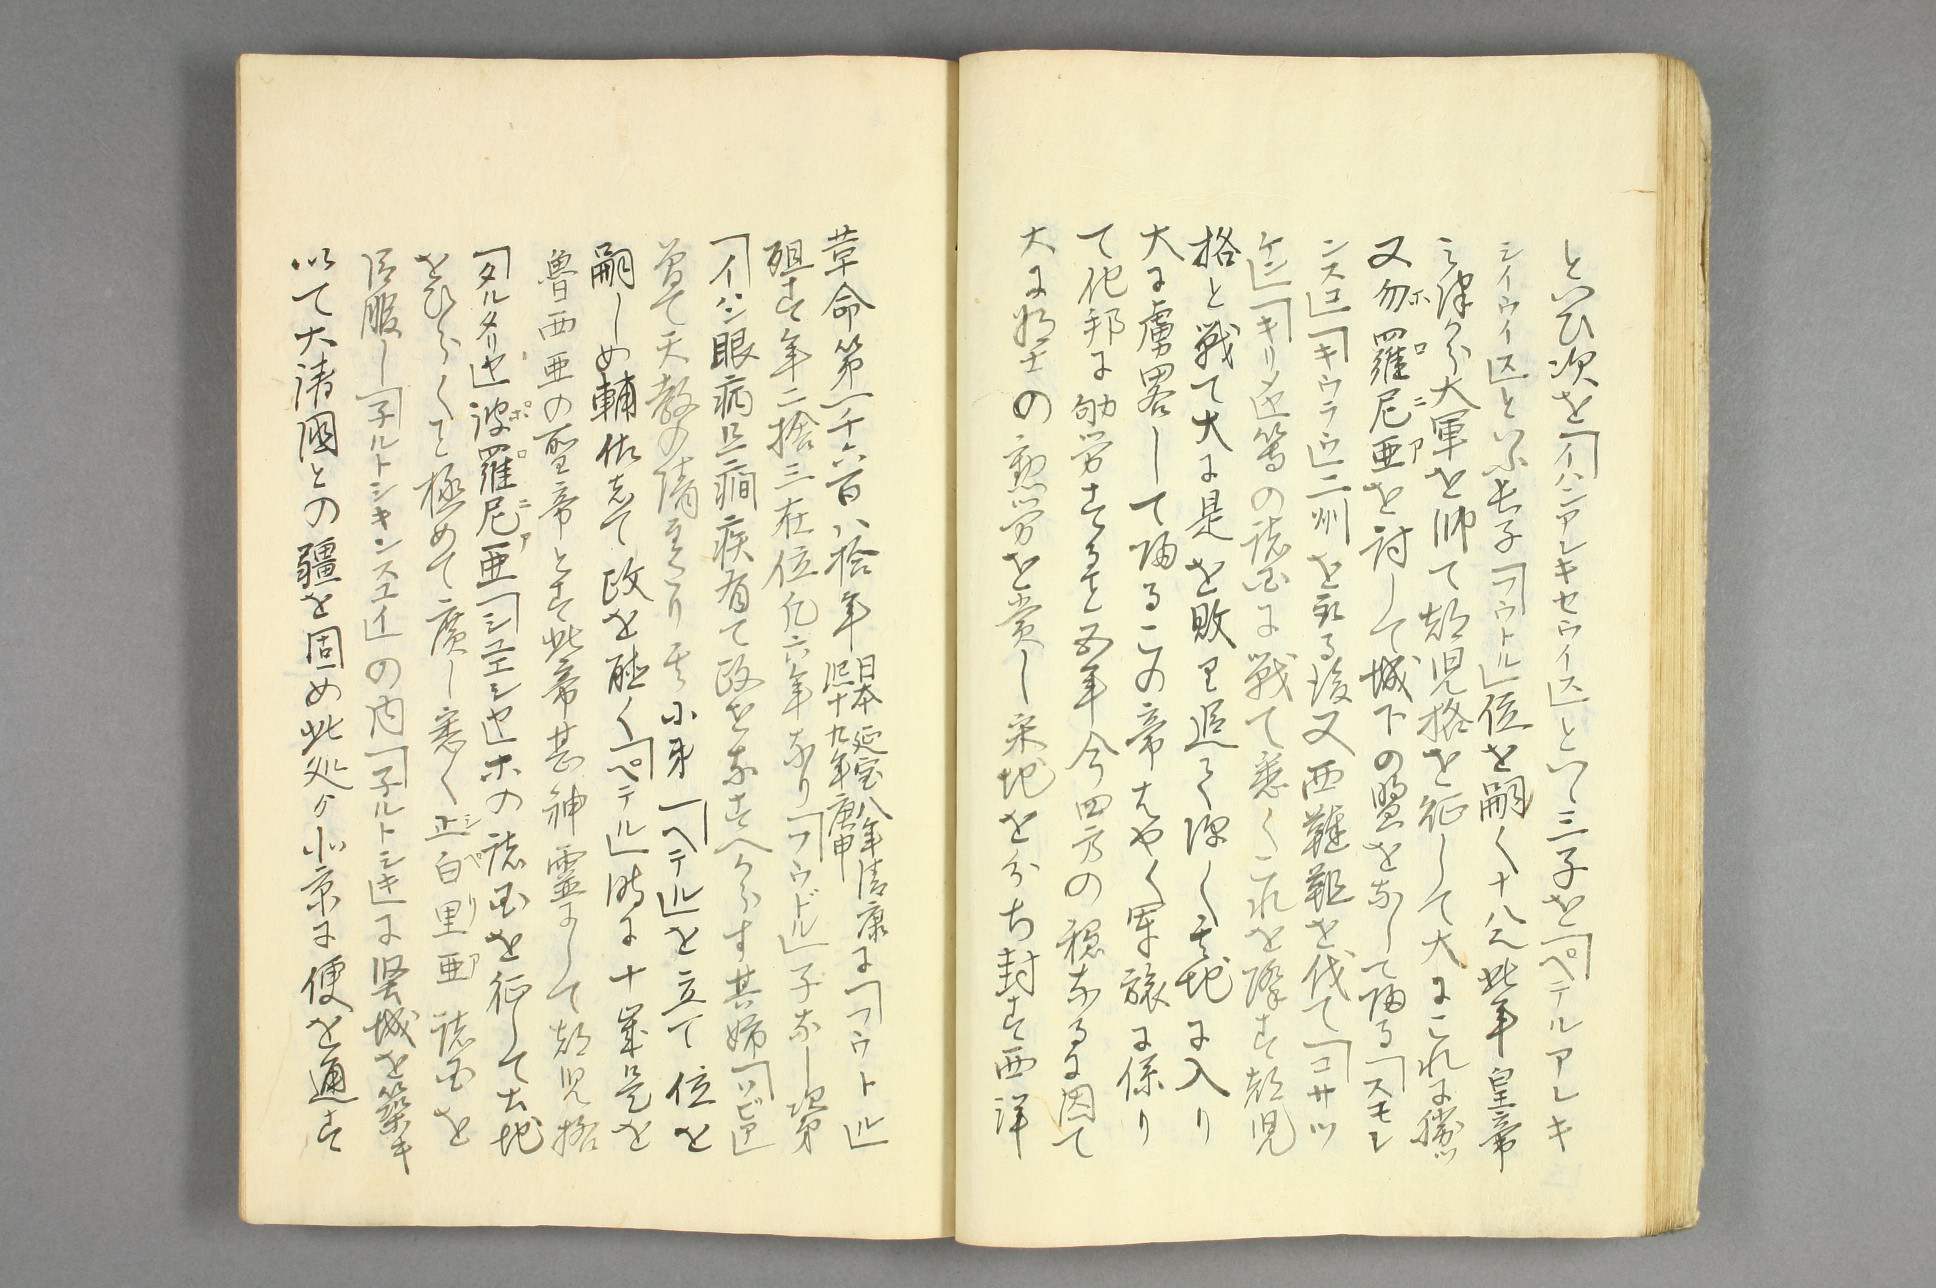 といひ次を「イハンアレキセウイス」といへ三子を「ペテルアレキ
シイウイス」といふ長子「フウトル」位を嗣く十八此年皇帝
みつから大軍を帥て都児格を征して大にこれに勝
又勿羅尼亜を討して城下の盟をなして帰る「スモレ
ンスコ」「キウラウ」二州を取る後又西韃靼を伐て「コサツ
ケン」「キリメン」等の諸国に戦て悉くこれを降す都児
格と戦て大に是を敗り追て深く其地に入り
大に虜畧して帰るこの帝はやく軍旅に係り
て他邦に劬労すること五年今四方の穏なるに因て
大に将士の勲労を賞し采地を分ち封す西洋
革命第一千六百八拾年日本延宝八年清康熙十九年庚申に「フウトル」
殂す年二拾三在位凡六年なり「フウドル」子なし次弟
「イハン」眼病且癇疾有て政をなすへからす其姉「ソビア」
曽て天教の清主たり其小弟「ヘテル」を立て位を
嗣しめ輔佐して政を聴く「ペテル」時に十歳是を
魯西亜の聖帝とす此帝甚神霊にして都児格
「タルタリヤ」波羅尼亜「シユエシヤ」ホの諸国を征して土地
をひらくこと極めて廣し悉く止白里亜諸国を
臣服し「子ルトシキンスコイ」の内「子ルトシキ」に堅城を築き
以て大清國との疆を固め此処より北京に便を通す